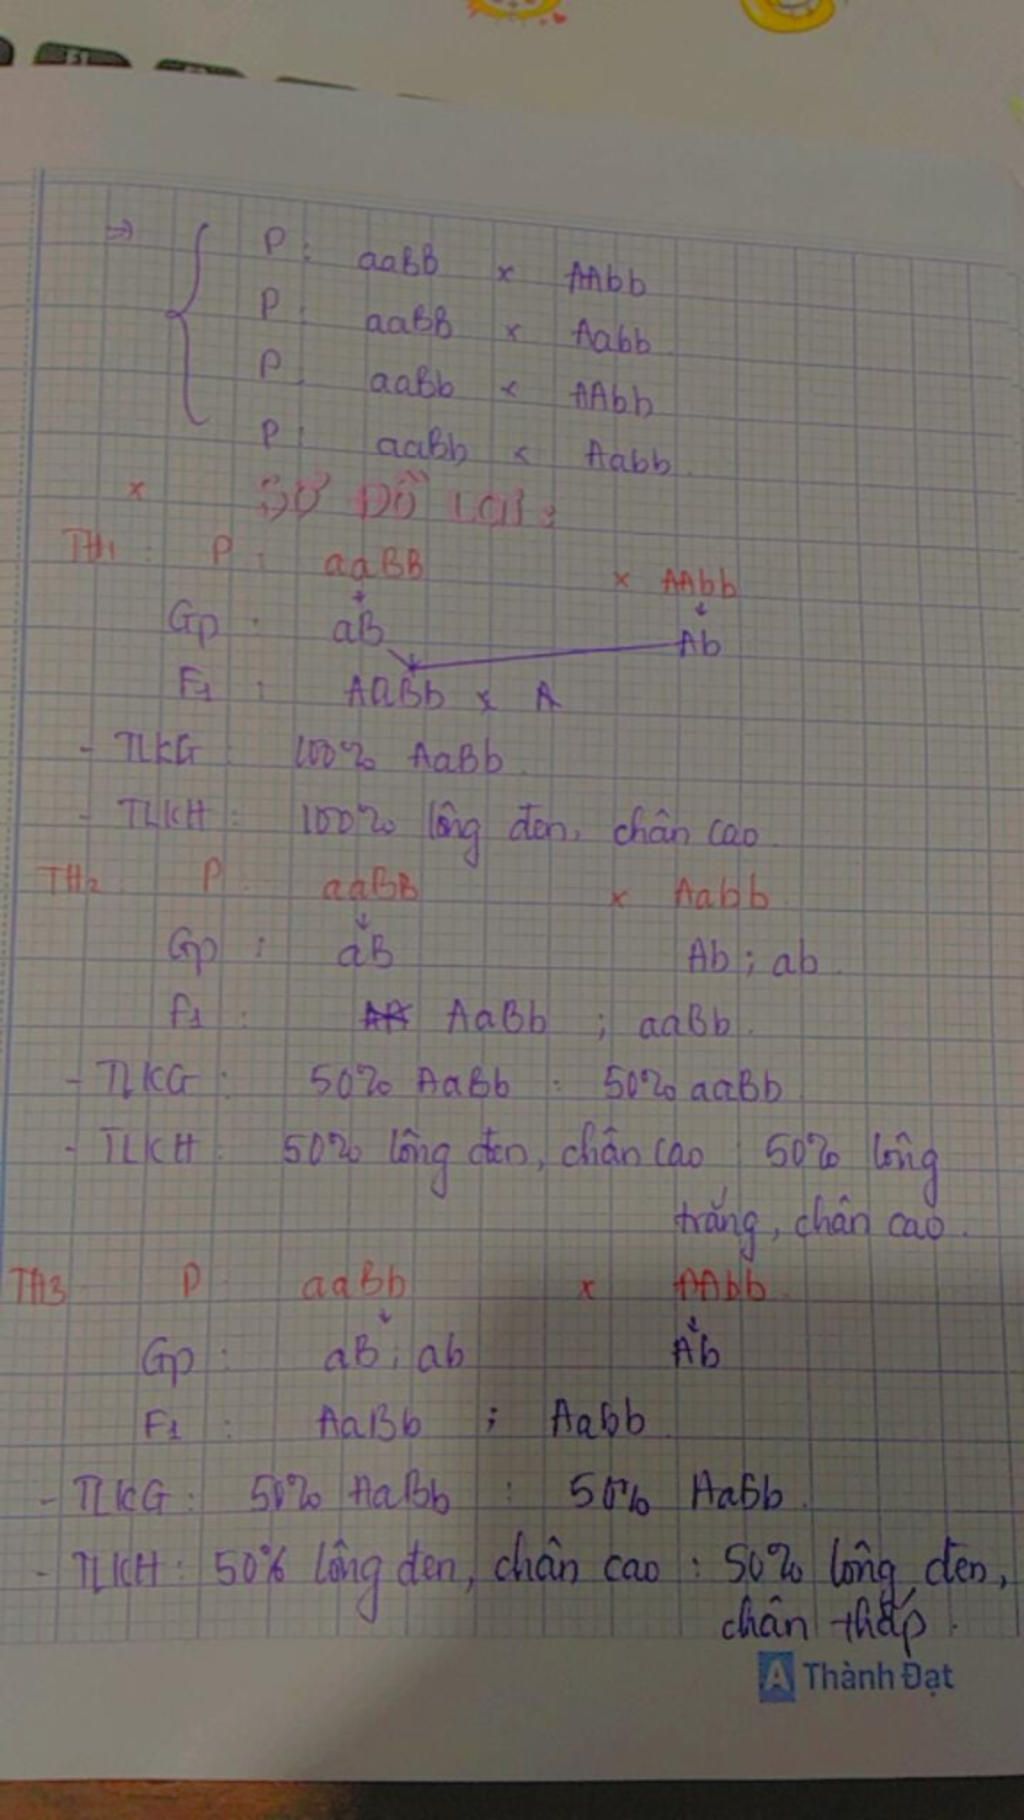 => { P : aaBB x AAbb
P : aaBB x Aabb
P : aaBb x AAbb
P : aaBb x Aabb
* SƠ ĐỒ LAI :
TH1 : P : aaBB x AAbb
Gp : aB Ab
F1 : AaBb x A
- TLKG : 100% AaBb
- TLKH : 100% lông đen, chân cao
TH2 : P : aaBB x Aabb
Gp : aB Ab ; ab
F1 : AaBb ; aaBb
- TLKG : 50% AaBb : 50% aaBb
- TLKH : 50% lông đen, chân cao : 50% lông
trắng, chân cao.
TH3 P : aaBb x AAbb
Gp : aB ; ab Ab
F1 : AaBb ; Aabb
- TLKG : 50% AaBb : 50% Aabb
- TLKH : 50% lông đen, chân cao : 50% lông đen,
chân thấp.
A Thành Đạt